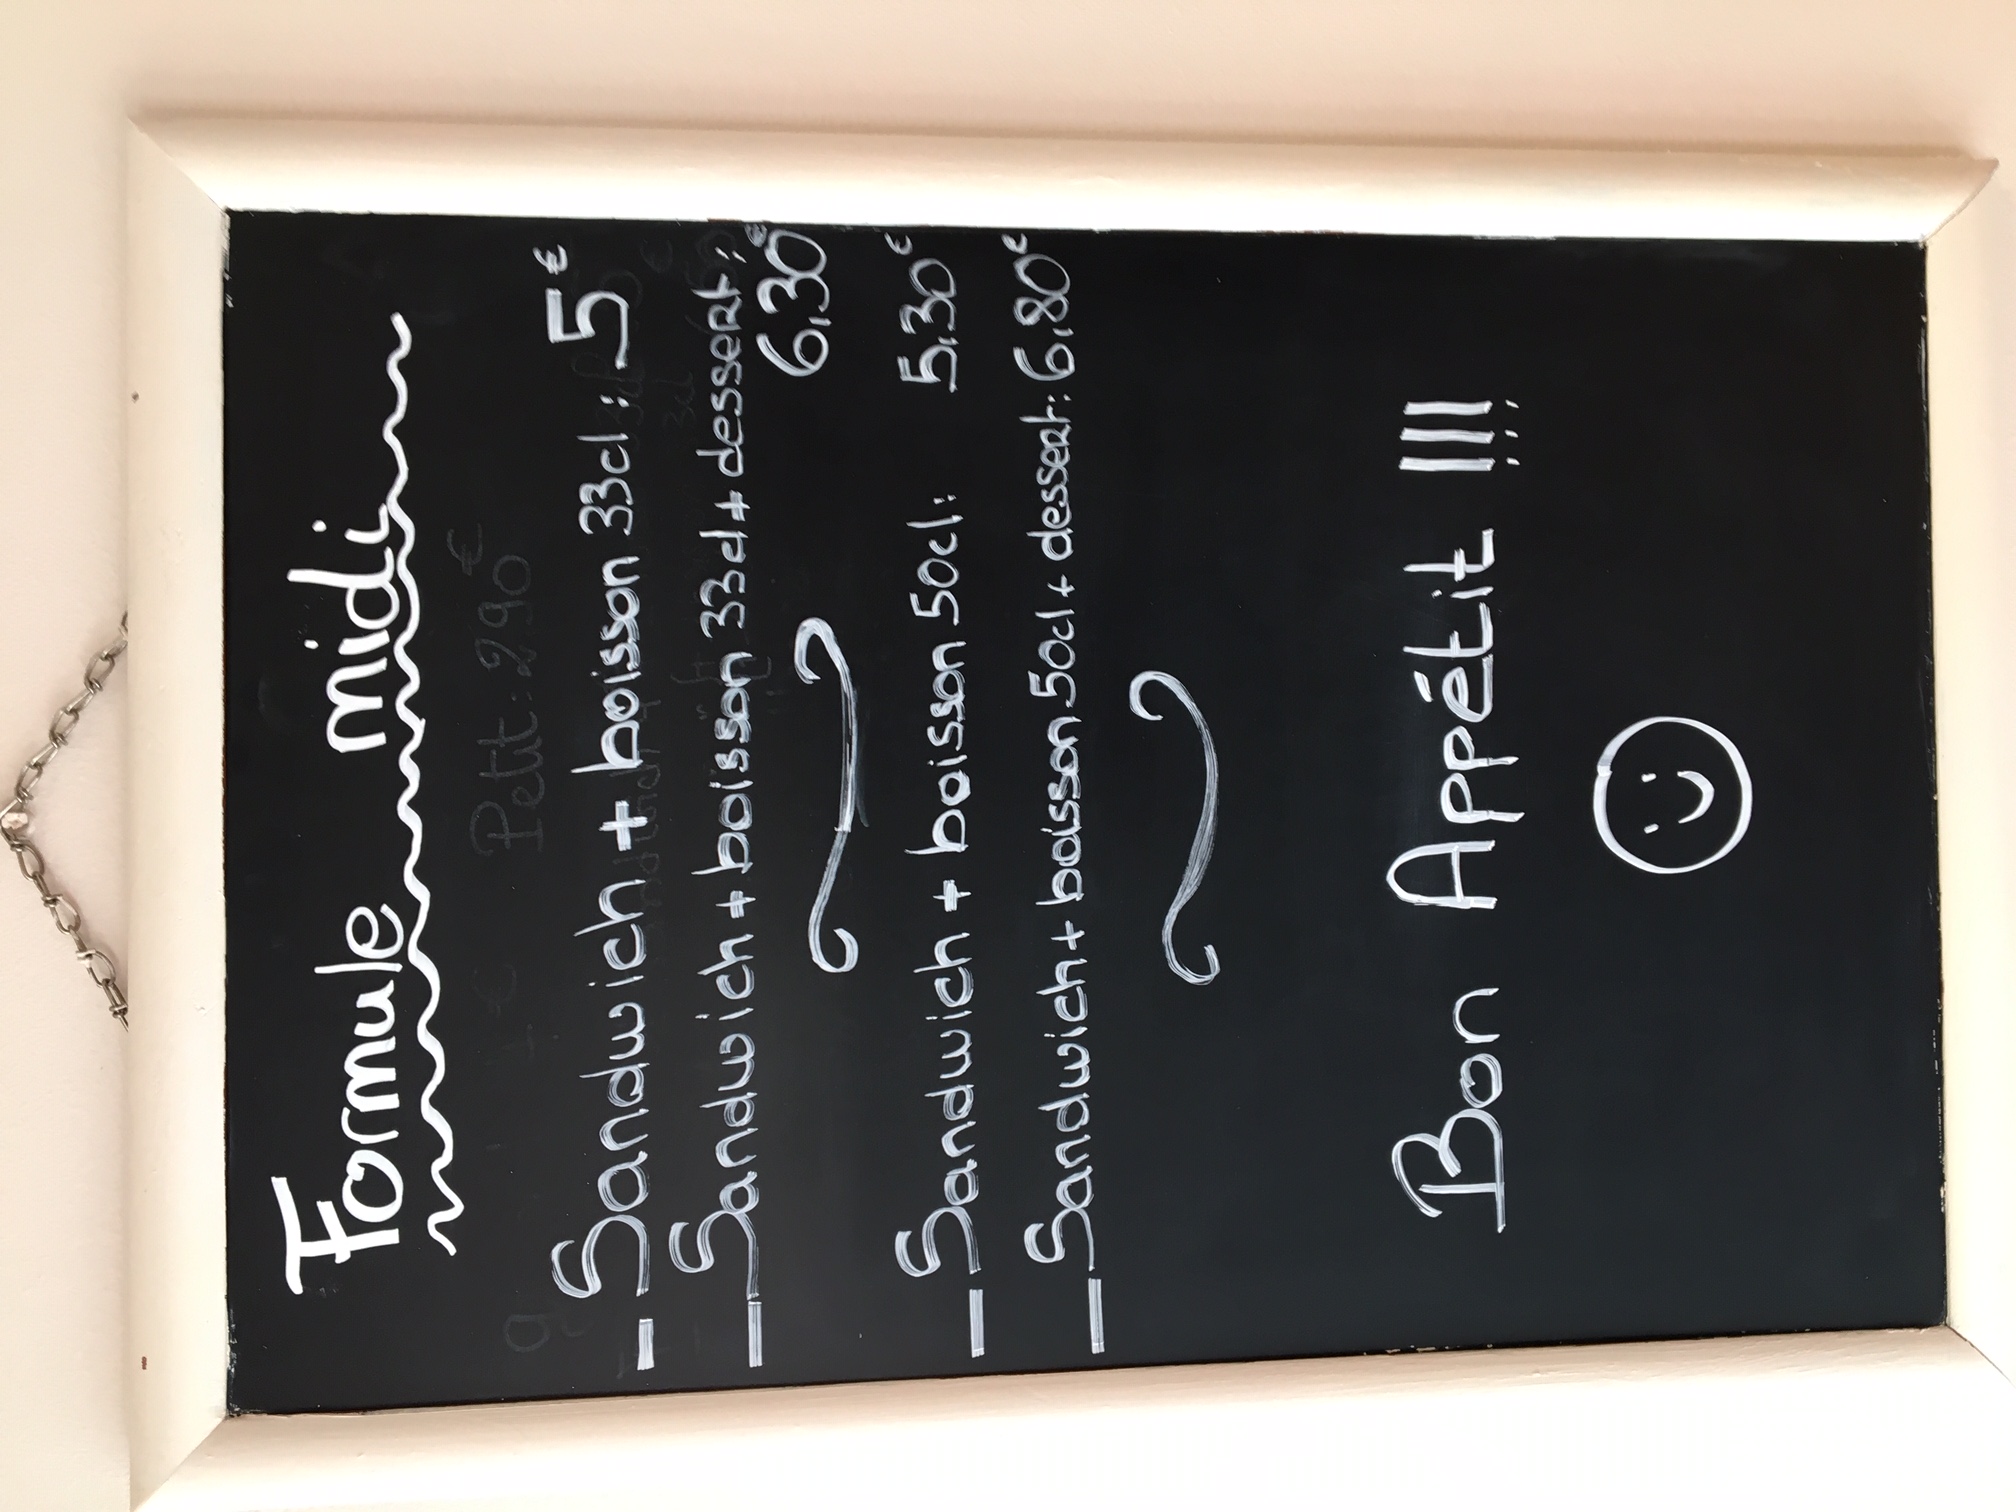 Formule midi
Petit: 2,90€
- Sandwich + boisson 33cl: 5€
- Sandwich + boisson 33cl + dessert:
6,30€
- Sandwich + boisson 50cl: 5,30€
- Sandwich + boisson 50cl + dessert: 6,80€
Bon Appétit !!!